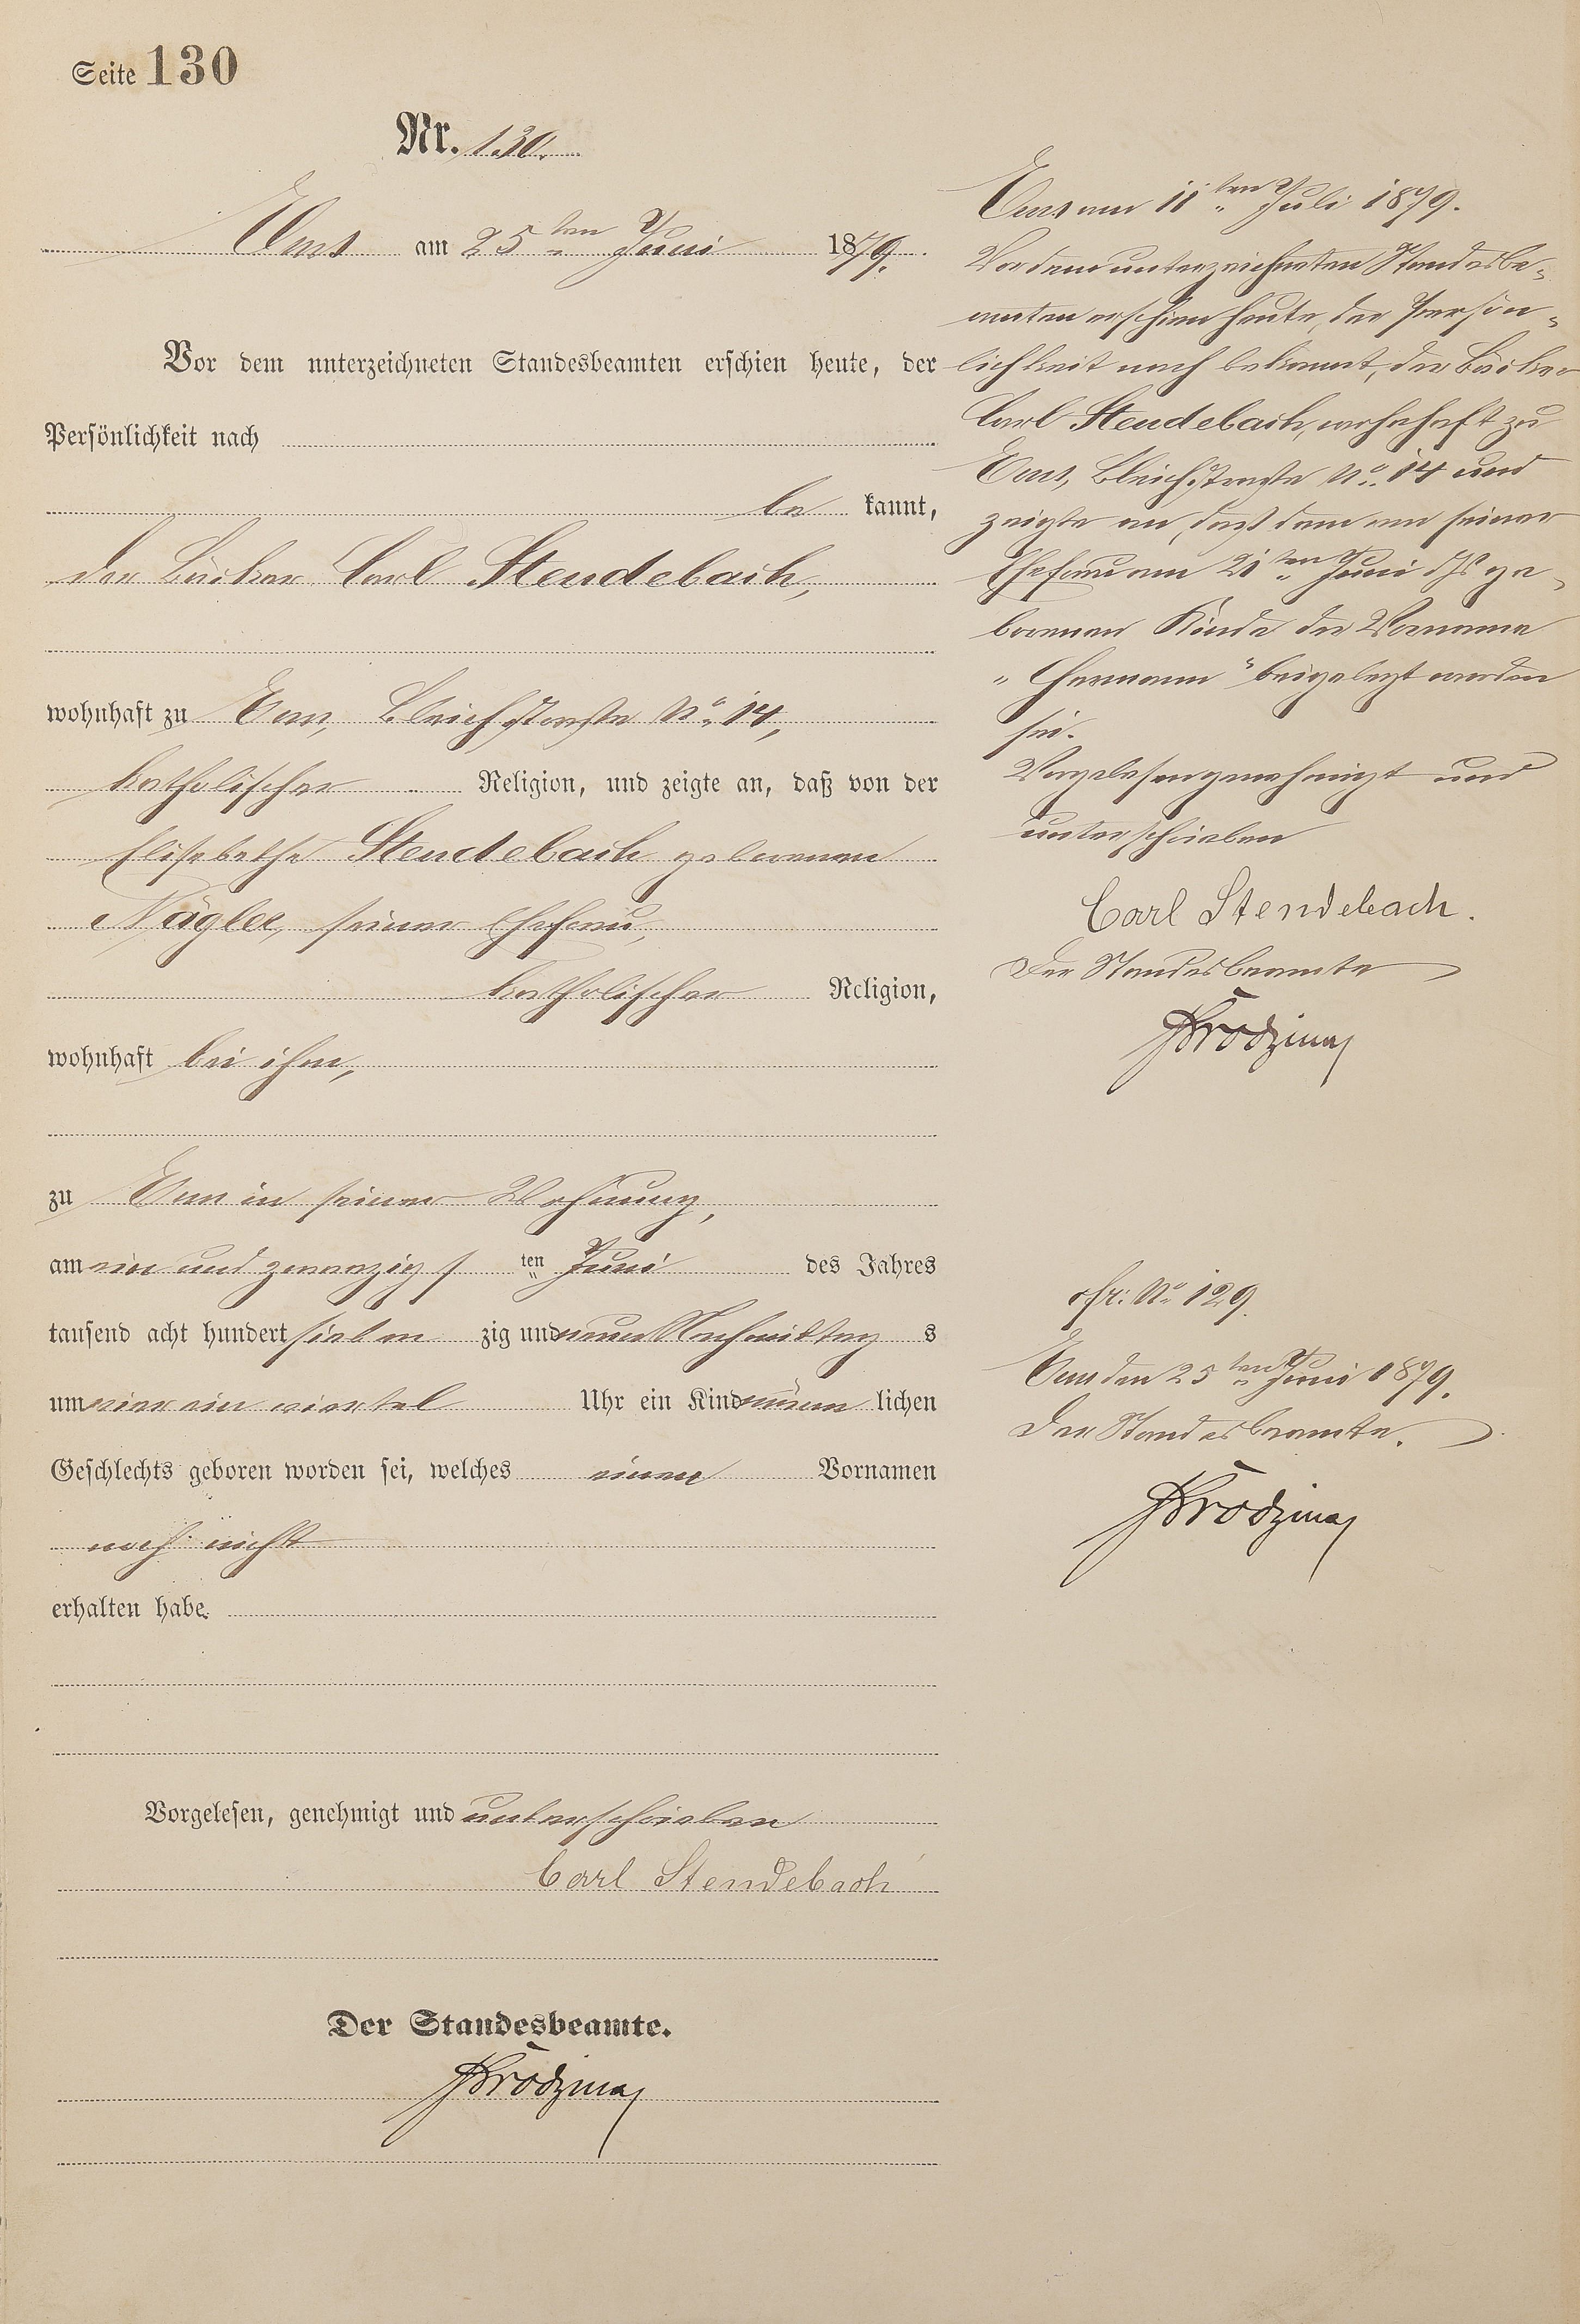 Seite 130
Nr. 130.
Ems am 25ten Juni 1879.
Vor dem unterzeichneten Standesbeamten erschien heute, der
Persönlichkeit nach
be kannt,
der Bäcker Carl Stendebach,
wohnhaft zu Ems, Bleichstraße No. 14,
katholischer Religion, und zeigte an, daß von der
Elisabetha Stendebach geborenen
Nägler, seiner Ehefrau,
katholischer Religion,
wohnhaft bei ihm,
zu Ems in seiner Wohnung,
am ein und zwanzigsten Juni des Jahres
tausend acht hundert sieben zig und neun Nachmittag s
um vier ein viertel Uhr ein Kind männ lichen
Geschlechts geboren worden sei, welches einen Vornamen
noch nicht
erhalten habe.
Vorgelesen, genehmigt und unterschrieben
Carl Stendebach
Der Standesbeamte.
Ems am 11ten Juli 1879.
Vor dem unterzeichneten Standesbe-
amten erschien heute, der Persön-
lichkeit nach bekannt, der Bäcker
Carl Stendebach, wohnhaft zu
Ems, Bleichstraße No. 14 und
zeigte an, daß dem von seiner
Ehefrau am 21ten Juni d. Js. ge-
borenen Kinde der Vorname
"Hermann" beigelegt worden
sei.
Vorgelesen genehmigt und
unterschrieben
Carl Stendebach.
Der Standesbeamte
cfr. No. 129.
Ems den 25ten Juni 1879.
Der Standesbeamte.